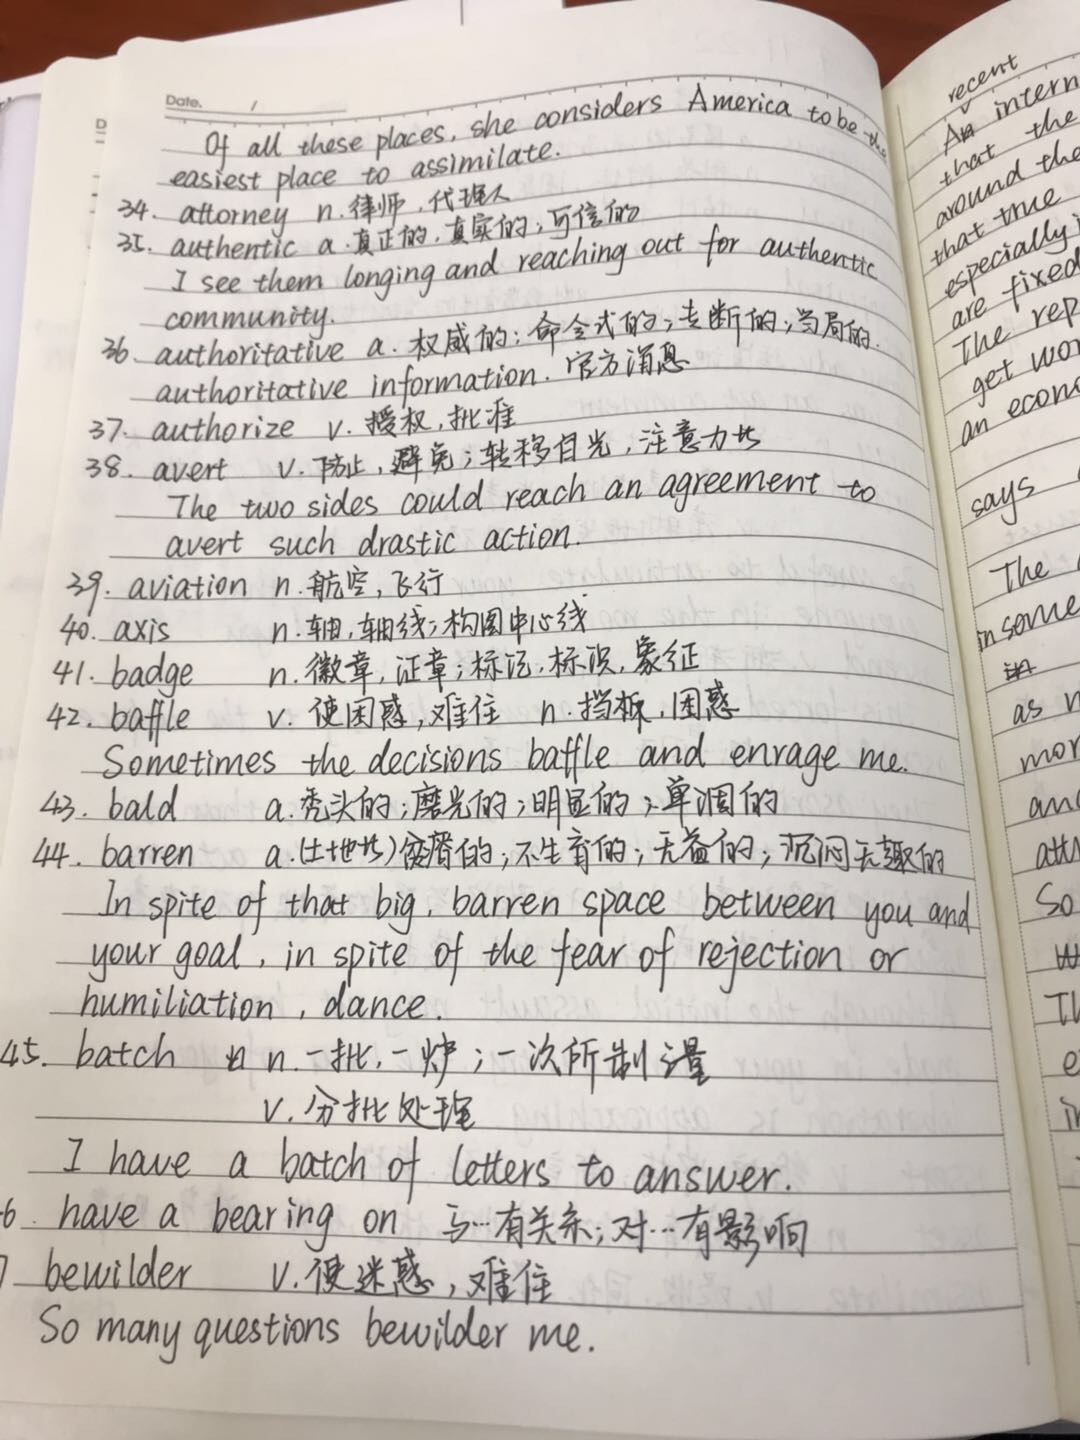 Date. /
Of all these places, she considers America to be the
easiest place to assimilate.
34. attorney n. 律师，代理人
35. authentic a. 真正的，真实的；可信的
I see them longing and reaching out for authentic
community.
36. authoritative a. 权威的；命令式的；专断的；当局的.
authoritative information. 官方消息
37. authorize v. 授权，批准
38. avert v. 防止，避免；转移目光，注意力等
The two sides could reach an agreement to
avert such drastic action.
39. aviation n. 航空，飞行
40. axis n. 轴，轴线；构图中心线
41. badge n. 徽章，证章；标记，标识，象征
42. baffle v. 使困惑，难住 n. 挡板，困惑
Sometimes the decisions baffle and enrage me.
43. bald a. 秃头的；磨光的；明显的；单调的
44. barren a. (土地等)贫瘠的；不生育的；无益的；沉闷无趣的
In spite of that big, barren space between you and
your goal, in spite of the fear of rejection or
humiliation, dance.
45. batch n. 一批，一炉；一次所制之量
v. 分批处理
I have a batch of letters to answer.
6. have a bearing on 与…有关系；对…有影响
bewilder v. 使迷惑，难住
So many questions bewilder me.
recent
An intern
that the
around the
that true
especially
are fixed
The rep
get wor
an econo
says
The
in some
in
as
mor
and
att
So